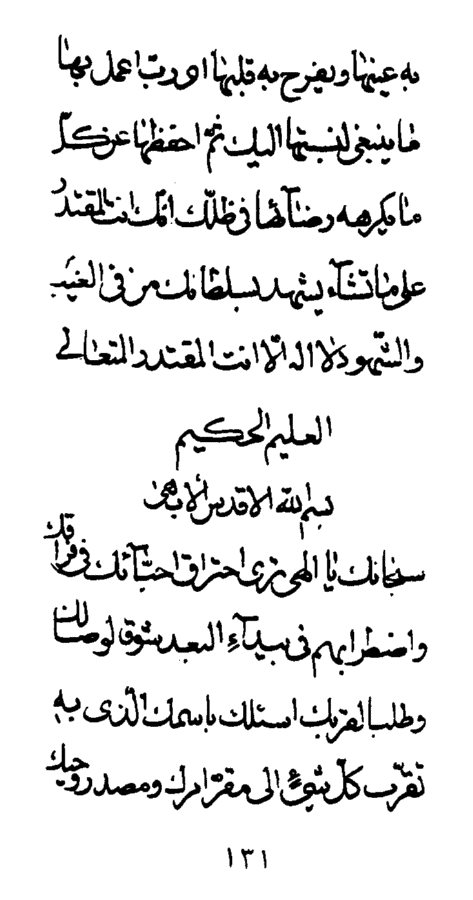 به عينها و يفرح به قلبها ای ربّ اعمل بها
ما ينبغی لنسبتها اليك ثمّ احفظها عن كلّ
ما يكرهه رضآئها فی ظلّك انّك انت المقتدر
علی ما تشآء يشهد بسلطانك من فی الغيب
والشّهود لا اله الّا انت المقتدر المتعالی
العليم الحكيم
بسم اللّه الاقدس الابهی
سبحانك يا الهی تری احتراق احبّآئك فی فراقك
واضطرابهم فی بيدآء البعد بشوق لوصالك
وطلبا لقربك اسئلك باسمك الّذی به
تقرّب كلّ شیء الی مقرّ امرك ومصدر وحيك
١٣١